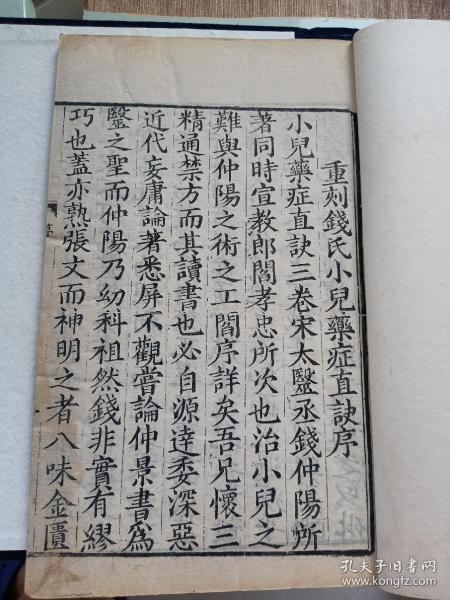 重刻錢氏小兒藥症直訣序
小兒藥症直訣三卷宋太醫丞錢仲陽所
著同時宣教郎閻孝忠所次也治小兒之
難與仲陽之術之工閻序詳矣吾兄懷三
精通禁方而其讀書也必自源達委深惡
近代妄庸論著悉屏不觀嘗論仲景書為
醫之聖而仲陽乃幼科祖然錢非實有繆
巧也蓋亦熟張文而神明之者八味金匱
序
孔夫子旧书网